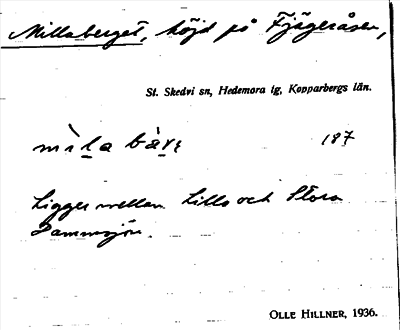 Millaberget, höjd på Fjägeråsen,
St. Skedvi sn, Hedemora tg, Kopparbergs län.
187
Ligger mellan Lilla och Stora
Dammsjön.
OLLE HILLNER, 1936.